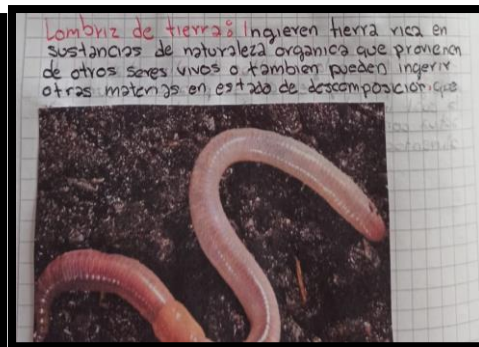 Lombriz de tierra: Ingieren tierra rica en
sustancias de naturaleza organica que provienen
de otros seres vivos o tambien pueden ingerir
otras materias en estado de descomposicion que